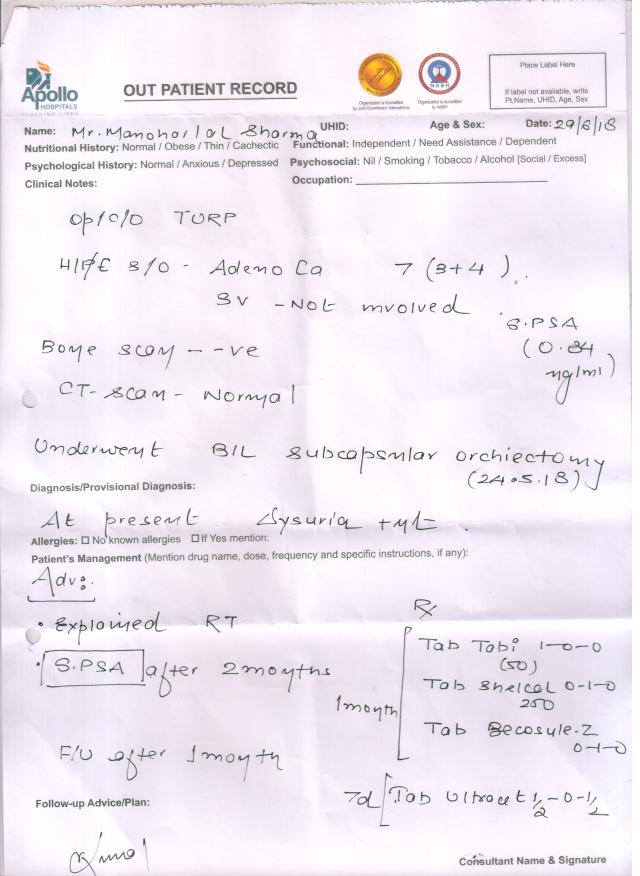 Apollo
HOSPITALS
TOUCHING LIVES
OUT PATIENT RECORD
Organization is Accredited
by Joint Commission International
NABH
Organization is accredited
by NABH
Place Label Here
If label not available, write
Pt.Name, UHID, Age, Sex
Name: Mr. Manoharlal Sharma UHID: Age & Sex: Date: 29/6/18
Nutritional History: Normal / Obese / Thin / Cachectic Functional: Independent / Need Assistance / Dependent
Psychological History: Normal / Anxious / Depressed Psychosocial: Nil / Smoking / Tobacco / Alcohol [Social / Excess]
Clinical Notes: Occupation:
Op/c/o TURP
H/P/E S/O - Adeno Ca 7 (3+4).
SV - Not involved
S.PSA
(0.84
ng/ml)
Bone scan - -ve
CT-scan - Normal
Underwent B/L subcapsular orchiectomy
(24.5.18)
Diagnosis/Provisional Diagnosis:
At present dysuria +nt.
Allergies: ☐ No known allergies ☐ If Yes mention:
Patient's Management (Mention drug name, dose, frequency and specific instructions, if any):
Adv:
• Explained RT
• S.PSA after 2 months
F/U after 1 month
Rx
1 month
Tab Tobi 1-0-0
(50)
Tab Shelcal 0-1-0
250
Tab Becosule-Z
0-1-0
7d Tab Ultracet 1/2-0-1/2
Follow-up Advice/Plan:
Consultant Name & Signature